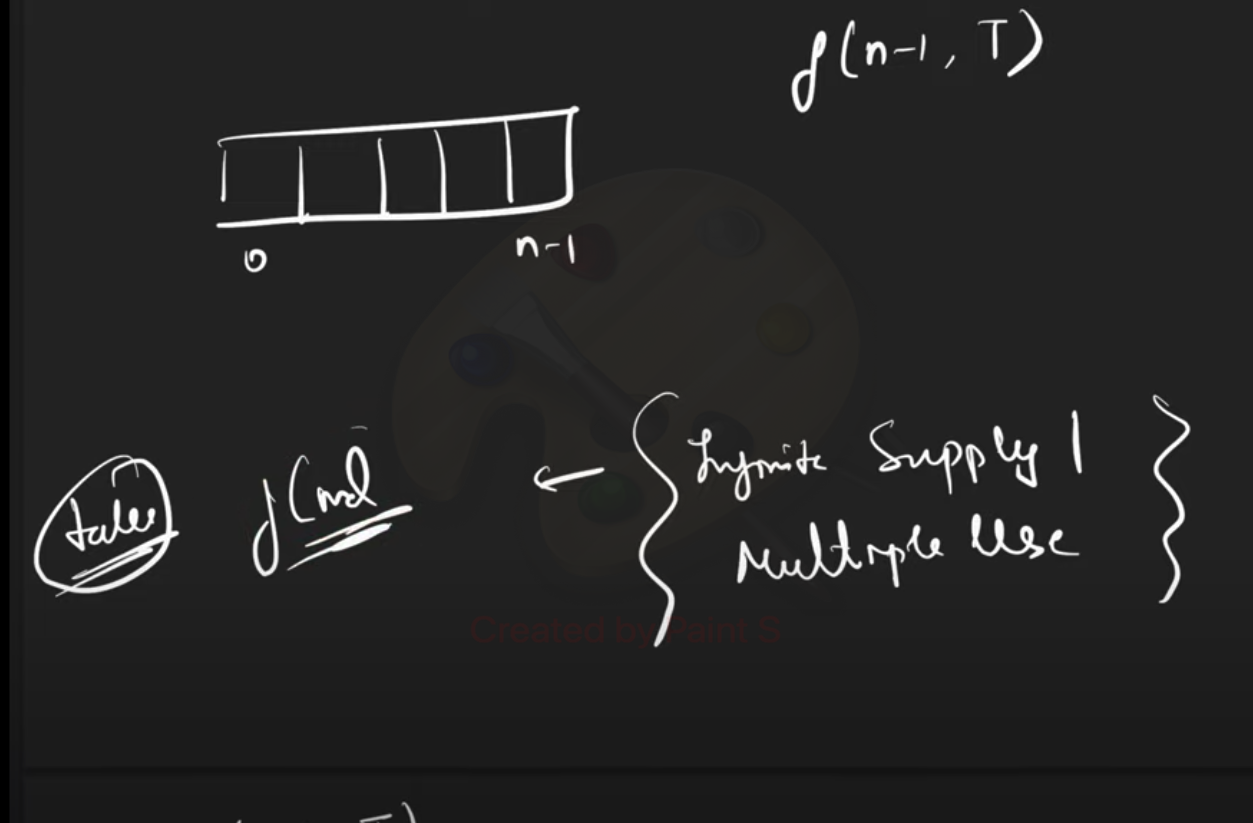 f(n-1, T)
0 n-1
take f(ind
Infinite Supply /
Multiple Use
Created by Paint S